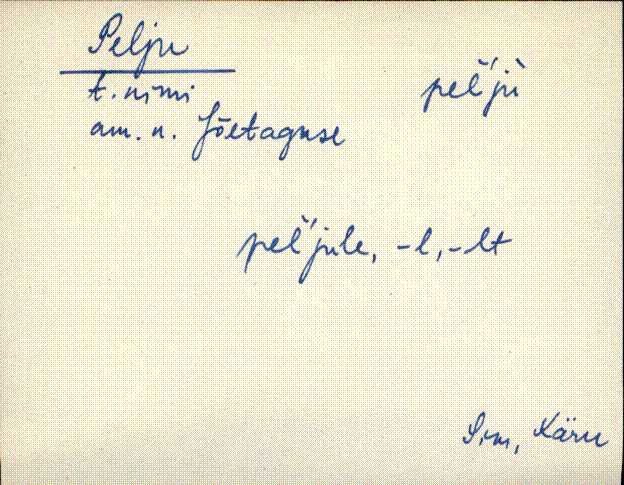 Pelju
t. nimi
am. n. Jõetaguse
pel̆'jù
pel̆'jule, -l, -lt
S.m, Käru